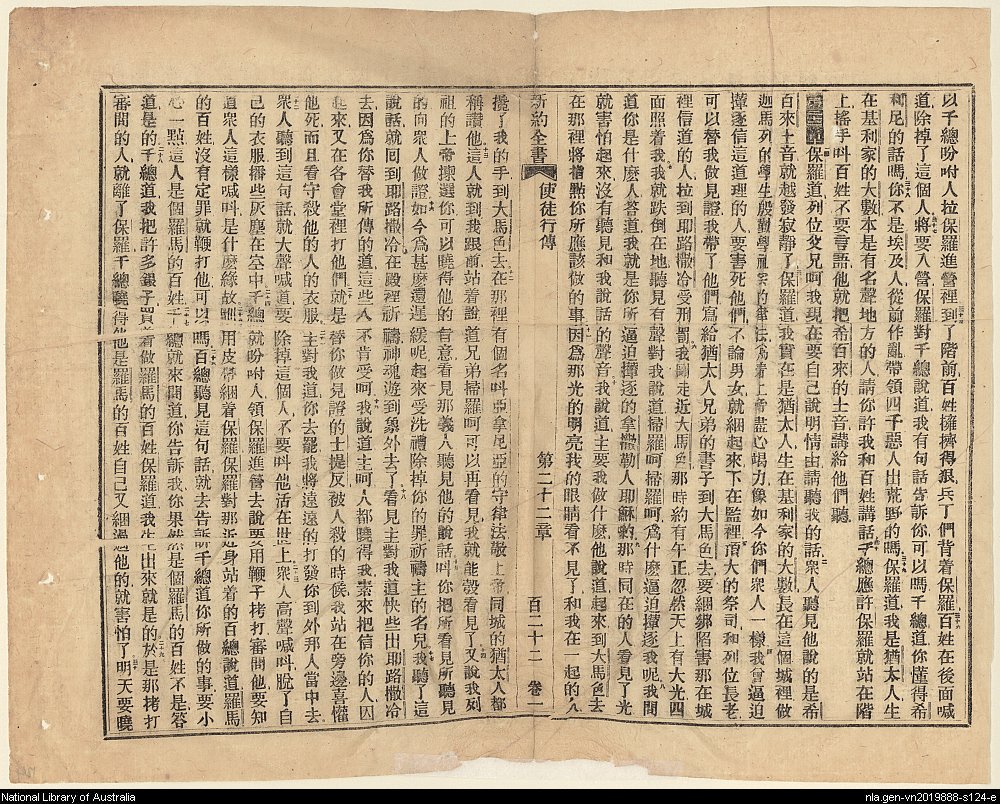 以予總吩咐人拉保羅進營裡到了階前百姓擁擠得狠兵丁們背着保羅百姓在後面喊
道除掉了這個人將要入營保羅對千總說道我有句話告訴你可以嗎千總道你懂得希
利尼的話嗎你不是埃及人從前作亂帶領四千惡人出荒野的嗎保羅道我是猶太人生
在基利家的大數本是有名聲地方的人請你許我和百姓講話千總應許保羅就站在階
上搖手叫百姓不要言語他就把希百來的土音講給他們聽
保羅道列位父兄呵我現在要自己說明情由請聽我的話衆人聽見他說的是希
百來土音就越發寂靜了保羅道我實在是猶太人生在基利家的大數長在這個城裡做
迦馬列的學生殷懃學祖宗的律法爲着上帝盡心竭力像如今你們衆人一樣我曾逼迫
攆逐信這道理的人要害死他們不論男女就綑起來下在監裡頂大的祭司和列位長老
可以替我做見證我帶了他們寫給猶太人兄弟的書子到大馬色去要綑綁陷害那在城
裡信道的人拉到耶路撒冷受刑罰我剛走近大馬色那時約有午正忽然天上有大光四
面照着我我就跌倒在地聽見有聲對我說道掃羅呵掃羅呵爲什麼逼迫攆逐我呢我問
道你是什麼人答道我就是你所逼迫攆逐的拿撒勒人耶穌的那時同在的人看見了光
就害怕起來沒有聽見和我說話的聲音我說道主要我做什麼他說道起來到大馬色去
在那裡將指點你所應該做的事因爲那光的明亮我的眼睛看不見了和我在一起的人
新約全書 使徒行傳 第二十二章 百二十二 卷一
攙了我的手到大馬色去在那裡有個名叫亞拿尼亞的守律法敬上帝同城的猶太人都
稱讚他這人就到我跟前站着說道兄弟掃羅呵可以再看見我就能彀看見了又說我列
祖的上帝揀選你可以曉得他的旨意看見那義人聽見他的說話叫你把所看見所聽見
的向衆人做證如今爲甚麼還遲緩呢起來受洗禮除掉你的罪祈禱主的名兒我聽了這
說話就回到耶路撒冷在殿裡祈禱神魂遊到象外去了看見主對我道快些出耶路撒冷
去因爲你替我所傳的道這些人不肯受呵我說道主呵人都曉得我素來把信你的人囚
起來又在各會堂裡打他們就是替你做見證的士提反被人殺的時候我站在旁邊喜懽
他死而且看守殺他的人的衣服主對我道你去罷我將遠遠的打發你到外邦人當中去
衆人聽到這句話就大聲喊道要除掉這個人不要叫他活在世上衆人高聲喊叫脫了自
己的衣服播些灰塵在空中千總就吩咐人領保羅進營去說要用鞭子拷打審問他要知
道衆人這樣喊叫是什麼緣故就用皮帶綑着保羅保羅對那近身站着的百總說道羅馬
的百姓沒有定罪就鞭打他可以嗎百總聽見這句話就去告訴千總道你所做的事要小
心一點這人是個羅馬的百姓千總就來問道你告訴我你果然是個羅馬的百姓不是答
道是的千總道我把許多銀子買着做羅馬的百姓保羅道我生出來就是的於是那拷打
審問的人就離了保羅千總曉得他是羅馬的百姓自己又綑過他的就害怕了明天要曉
National Library of Australia
nla.gen-vn2019888-s124-e